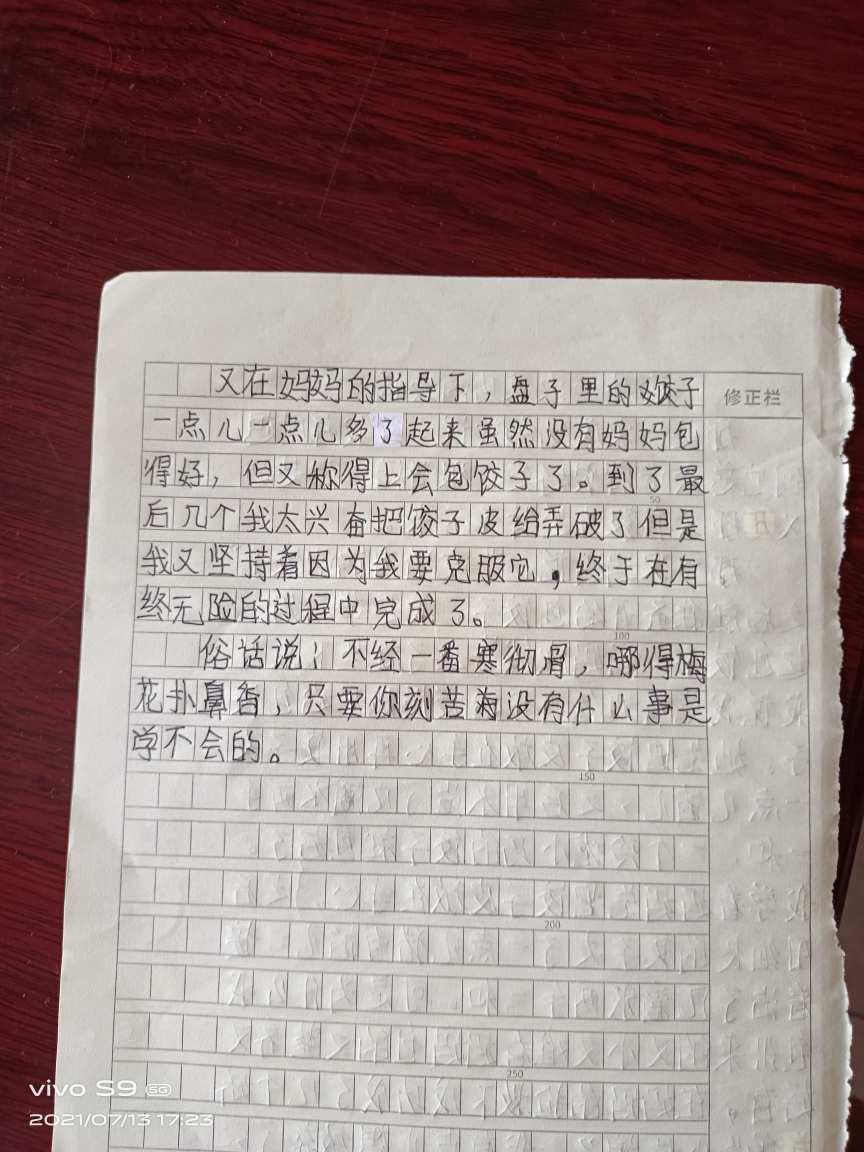 又在妈妈的指导下，盘子里的饺子
修正栏
一点儿一点儿多了起来虽然没有妈妈包
得好，但又称得上会包饺子了。到了最
50
后几个我太兴奋把饺子皮给弄破了但是
我又坚持着因为我要克服它，终于在有
终无险的过程中完成了。
100
俗话说：不经一番寒彻骨，哪得梅
花扑鼻香，只要你刻苦海没有什么事是
学不会的。
150
200
250
vivo S9 5G
2021/07/13 17:23